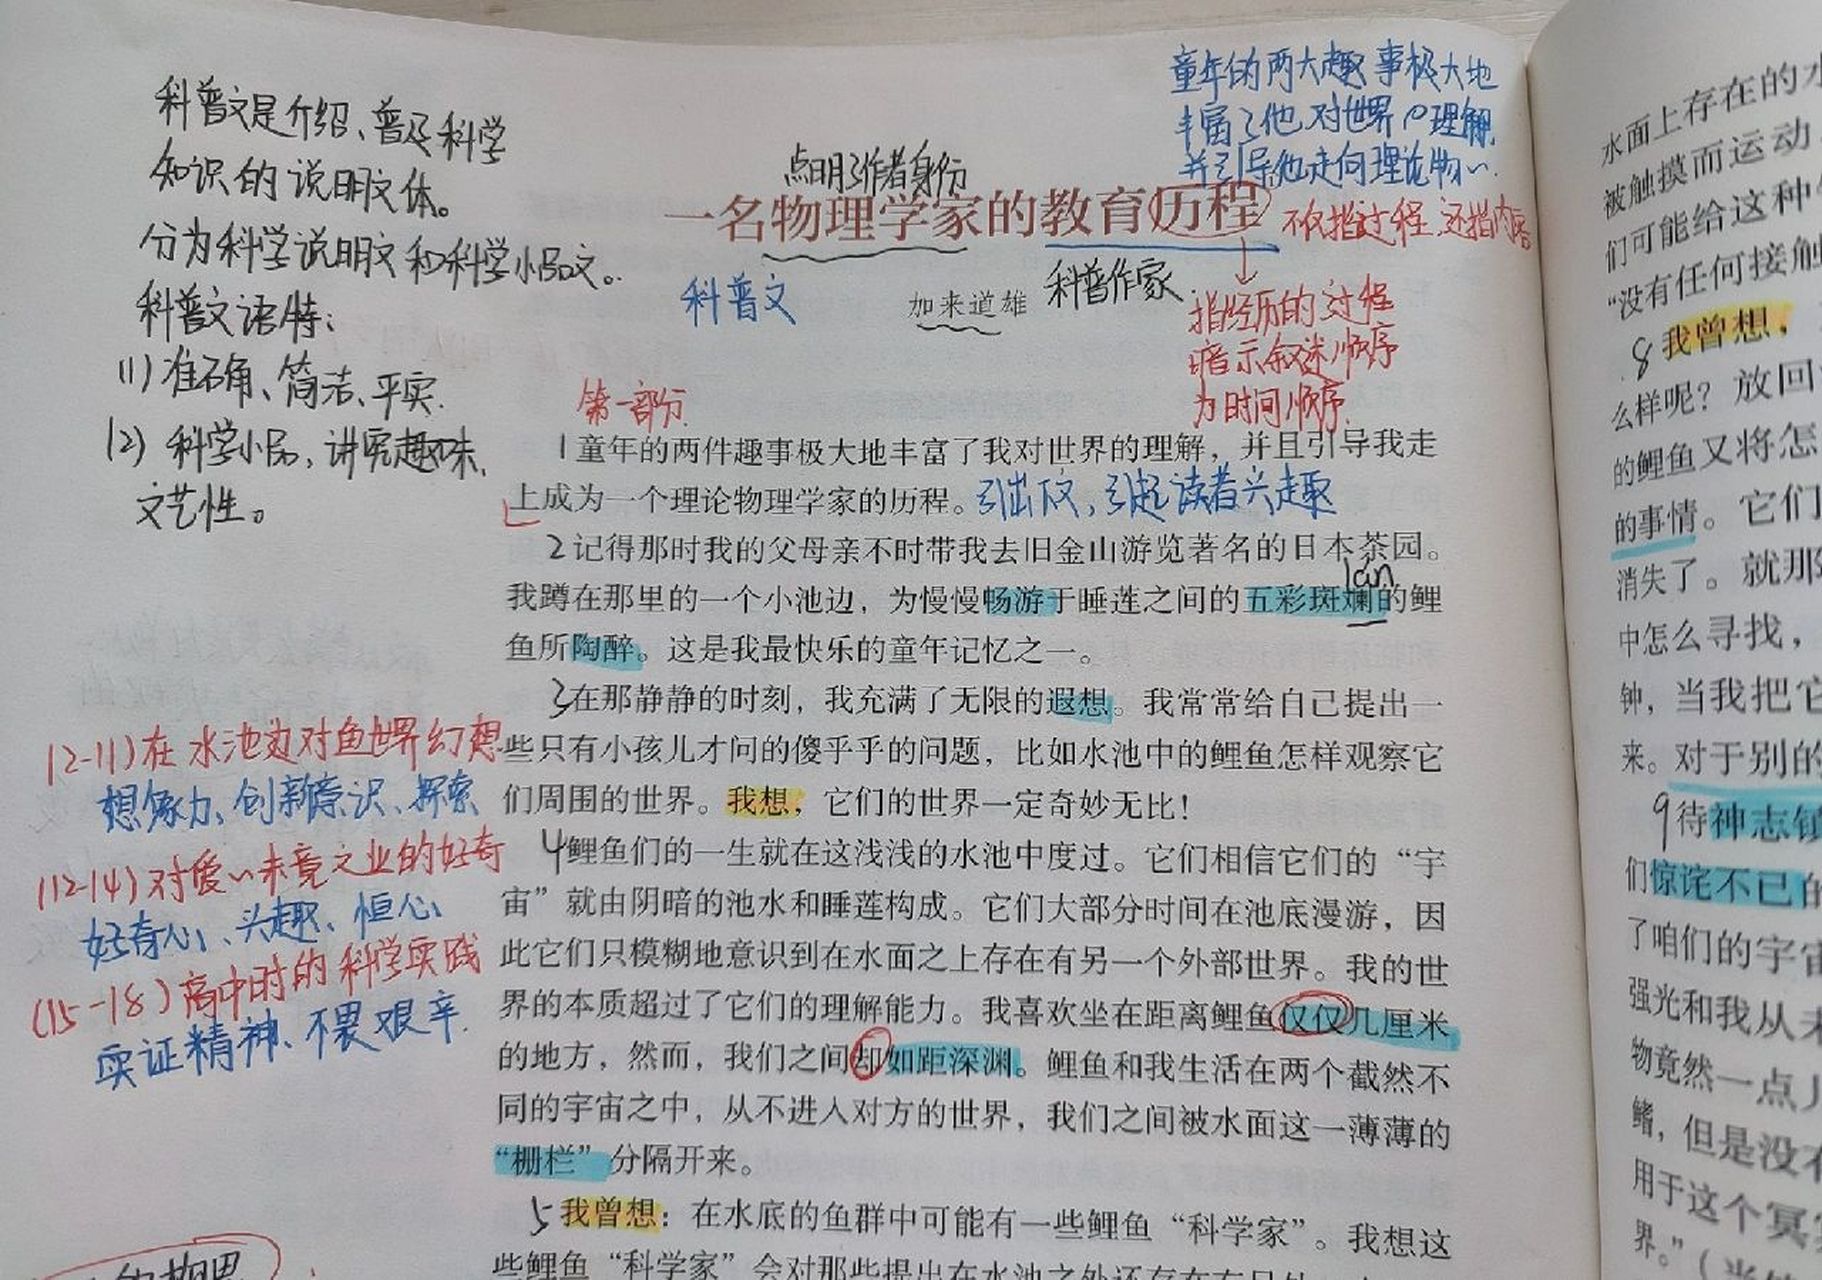 童年的两大趣事极大地
丰富了他对世界的理解,
并引导他走向理论物
科普文是介绍、普及科学
知识的说明文体。
分为科学说明文和科学小品文。
科普文语特:
(1)准确、简洁、平实.
(2)科学小品,讲究趣味、
文艺性。
点明了作者身份
一名物理学家的教育历程
不仅指过程,还指内容
科普文
加来道雄
科普作家.
指经历的过程
暗示叙述顺序
为时间顺序.
第一部分
1童年的两件趣事极大地丰富了我对世界的理解,并且引导我走
上成为一个理论物理学家的历程。
引出下文,引起读者兴趣
2记得那时我的父母亲不时带我去旧金山游览著名的日本茶园。
lán
我蹲在那里的一个小池边,为慢慢畅游于睡莲之间的五彩斑斓的鲤
鱼所陶醉。这是我最快乐的童年记忆之一。
3在那静静的时刻,我充满了无限的遐想。我常常给自己提出一
些只有小孩儿才问的傻乎乎的问题,比如水池中的鲤鱼怎样观察它
们周围的世界。我想,它们的世界一定奇妙无比!
4鲤鱼们的一生就在这浅浅的水池中度过。它们相信它们的“宇
宙”就由阴暗的池水和睡莲构成。它们大部分时间在池底漫游,因
此它们只模糊地意识到在水面之上存在有另一个外部世界。我的世
界的本质超过了它们的理解能力。我喜欢坐在距离鲤鱼仅仅几厘米
的地方,然而,我们之间却如距深渊。鲤鱼和我生活在两个截然不
同的宇宙之中,从不进入对方的世界,我们之间被水面这一薄薄的
“栅栏”分隔开来。
5我曾想:在水底的鱼群中可能有一些鲤鱼“科学家”。我想这
些鲤鱼“科学家”会对那些提出在水池之外还存在有另外
(2-11)在水池边对鱼世界幻想
想象力、创新意识、探索
(12-14)对爱、、未竟之业的好奇
好奇心、兴趣、恒心
(15-18)高中时的科学实践
实证精神、不畏艰辛.
水面上存在的水
被触摸而运动
们可能给这种
“没有任何接触
8我曾想,
么样呢?放回
的鲤鱼又将怎
的事情。它们
消失了。就那
中怎么寻找,
钟,当我把它
来。对于别的
9待神志镇
们惊诧不已的
了咱们的宇宙
强光和我从未
物竟然一点儿
鳍,但是没有
用于这个冥
界。”(当然